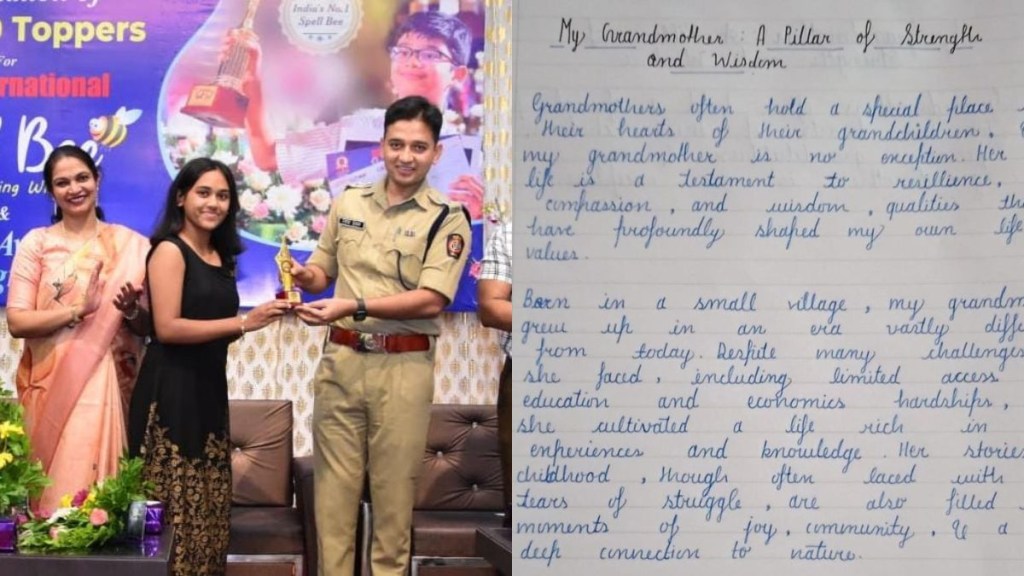 India's No.1
Spell Bee
Toppers
For
rnational
Bee
&
My Grandmother : A Pillar of Strength
and Wisdom
Grandmothers often hold a special place
their hearts of their grandchildren.
my grandmother is no exception. Her
life is a testament to resillience,
compassion, and wisdom, qualities th
have profoundly shaped my own life
values.
Born in a small village, my grandm
grew up in an era vastly diff
from today. Despite many challenges
she faced, including limited access
education and economics hardships,
she cultivated a life rich in
experiences and knowledge. Her stories
childhood, though often laced with
tears of struggle, are also filled
moments of joy, community, & a
deep connection to nature.